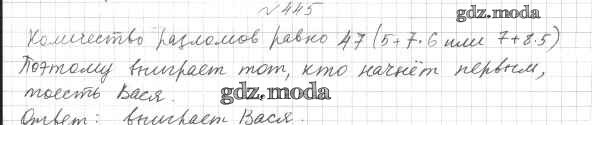 № 445
gdz.moda
Количество разломов равно 47 (5+7·6 или 7+8·5)
Поэтому выиграет тот, кто начнёт первым,
тоесть Вася. gdz.moda
Ответ: выиграет Вася.